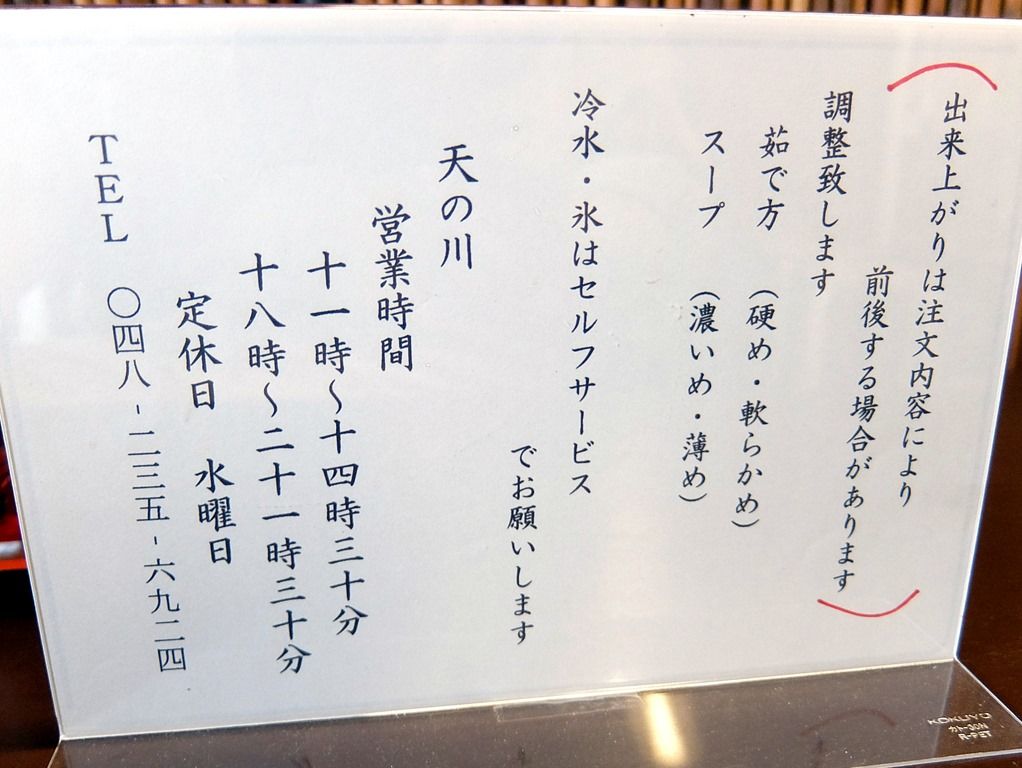 出来上がりは注文内容により
前後する場合があります
調整致します
茹で方 (硬め・軟らかめ)
スープ (濃いめ・薄め)
冷水・氷はセルフサービス
でお願いします
天の川
営業時間
十一時~十四時三十分
十八時~二十一時三十分
定休日 水曜日
TEL 〇四八-二三五-六九二四
KOKUYO
カト-30N
R-PET